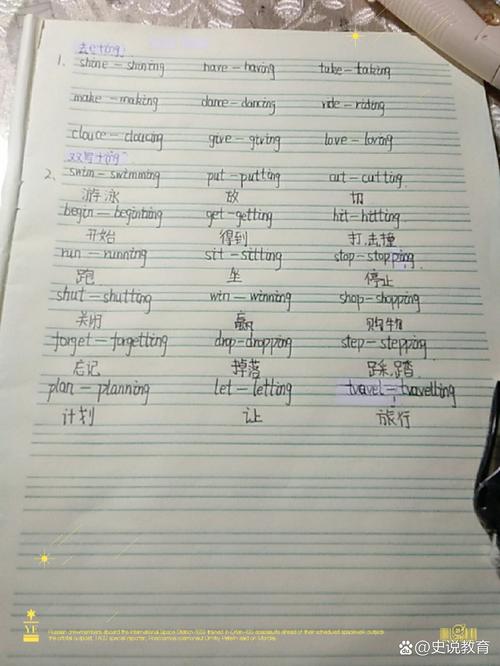 去e+ing
1. shine – shining have – having take – taking
make – making dance – dancing ride – riding
clouce – cloucing give – giving love – loving
双写+ing
2. swim – swimming put – putting cut – cutting
游泳 放 切
begin – beginning get – getting hit – hitting
开始 得到 打,击,撞
run – running sit – sitting stop – stopping
跑 坐 停止
shut – shutting win – winning shop – shopping
关闭 赢 购物
forget – forgetting drop – dropping step – stepping
忘记 掉落 踩,踏
plan – planning let – letting travel – travelling
计划 让 旅行
YE
Russian crewmembers aboard the International Space Station
头条 @史说教育